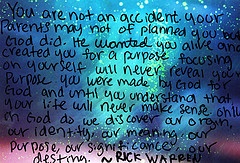 You are not an accident your
Parents may not of planned you but
God did. He wanted you alive and
created you for a purpose focusing
on yourself will never reveal your
Purpose you were made by God to
God and until you understand that,
your life will never make sense only
in God do we discover our origin,
our identity, our meaning, our
purpose, our significance, our
destiny. ~ RICK WARREN